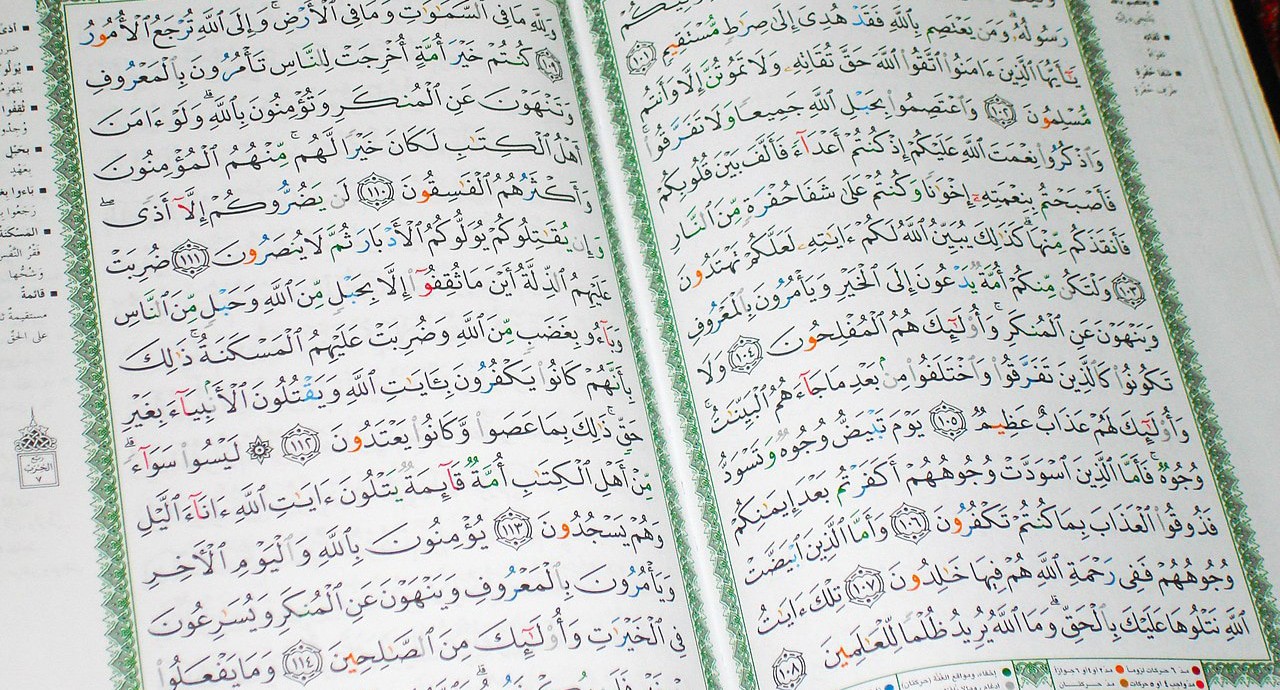 رَسُولُهُۥ وَمَن يَعْتَصِم بِٱللَّهِ فَقَدْ هُدِىَ إِلَىٰ صِرَٰطٍ مُّسْتَقِيمٍ ١٠١
يَـٰٓأَيُّهَا ٱلَّذِينَ ءَامَنُوا۟ ٱتَّقُوا۟ ٱللَّهَ حَقَّ تُقَاتِهِۦ وَلَا تَمُوتُنَّ إِلَّا وَأَنتُم
مُّسْلِمُونَ ١٠٢ وَٱعْتَصِمُوا۟ بِحَبْلِ ٱللَّهِ جَمِيعًا وَلَا تَفَرَّقُوا۟ ۚ
وَٱذْكُرُوا۟ نِعْمَتَ ٱللَّهِ عَلَيْكُمْ إِذْ كُنتُمْ أَعْدَآءً فَأَلَّفَ بَيْنَ قُلُوبِكُمْ
فَأَصْبَحْتُم بِنِعْمَتِهِۦٓ إِخْوَٰنًا وَكُنتُمْ عَلَىٰ شَفَا حُفْرَةٍ مِّنَ ٱلنَّارِ
فَأَنقَذَكُم مِّنْهَا ۗ كَذَٰلِكَ يُبَيِّنُ ٱللَّهُ لَكُمْ ءَايَـٰتِهِۦ لَعَلَّكُمْ تَهْتَدُونَ
١٠٣ وَلْتَكُن مِّنكُمْ أُمَّةٌ يَدْعُونَ إِلَى ٱلْخَيْرِ وَيَأْمُرُونَ بِٱلْمَعْرُوفِ
وَيَنْهَوْنَ عَنِ ٱلْمُنكَرِ ۚ وَأُو۟لَـٰٓئِكَ هُمُ ٱلْمُفْلِحُونَ ١٠٤ وَلَا
تَكُونُوا۟ كَٱلَّذِينَ تَفَرَّقُوا۟ وَٱخْتَلَفُوا۟ مِنۢ بَعْدِ مَا جَآءَهُمُ ٱلْبَيِّنَـٰتُ ۚ
وَأُو۟لَـٰٓئِكَ لَهُمْ عَذَابٌ عَظِيمٌ ١٠٥ يَوْمَ تَبْيَضُّ وُجُوهٌ وَتَسْوَدُّ
وُجُوهٌ ۚ فَأَمَّا ٱلَّذِينَ ٱسْوَدَّتْ وُجُوهُهُمْ أَكَفَرْتُم بَعْدَ إِيمَـٰنِكُمْ
فَذُوقُوا۟ ٱلْعَذَابَ بِمَا كُنتُمْ تَكْفُرُونَ ١٠٦ وَأَمَّا ٱلَّذِينَ ٱبْيَضَّتْ
وُجُوهُهُمْ فَفِى رَحْمَةِ ٱللَّهِ هُمْ فِيهَا خَـٰلِدُونَ ١٠٧ تِلْكَ ءَايَـٰتُ
ٱللَّهِ نَتْلُوهَا عَلَيْكَ بِٱلْحَقِّ ۗ وَمَا ٱللَّهُ يُرِيدُ ظُلْمًا لِّلْعَـٰلَمِينَ ١٠٨
وَلِلَّهِ مَا فِى ٱلسَّمَـٰوَٰتِ وَمَا فِى ٱلْأَرْضِ ۚ وَإِلَى ٱللَّهِ تُرْجَعُ ٱلْأُمُورُ
١٠٩ كُنتُمْ خَيْرَ أُمَّةٍ أُخْرِجَتْ لِلنَّاسِ تَأْمُرُونَ بِٱلْمَعْرُوفِ
وَتَنْهَوْنَ عَنِ ٱلْمُنكَرِ وَتُؤْمِنُونَ بِٱللَّهِ ۗ وَلَوْ ءَامَنَ
أَهْلُ ٱلْكِتَـٰبِ لَكَانَ خَيْرًا لَّهُم ۚ مِّنْهُمُ ٱلْمُؤْمِنُونَ
وَأَكْثَرُهُمُ ٱلْفَـٰسِقُونَ ١١٠ لَن يَضُرُّوكُمْ إِلَّآ أَذًى ۖ
وَإِن يُقَـٰتِلُوكُمْ يُوَلُّوكُمُ ٱلْأَدْبَارَ ثُمَّ لَا يُنصَرُونَ ١١١ ضُرِبَتْ
عَلَيْهِمُ ٱلذِّلَّةُ أَيْنَ مَا ثُقِفُوٓا۟ إِلَّا بِحَبْلٍ مِّنَ ٱللَّهِ وَحَبْلٍ مِّنَ ٱلنَّاسِ
وَبَآءُو بِغَضَبٍ مِّنَ ٱللَّهِ وَضُرِبَتْ عَلَيْهِمُ ٱلْمَسْكَنَةُ ۚ ذَٰلِكَ
بِأَنَّهُمْ كَانُوا۟ يَكْفُرُونَ بِـَٔايَـٰتِ ٱللَّهِ وَيَقْتُلُونَ ٱلْأَنۢبِيَآءَ بِغَيْرِ
حَقٍّ ۚ ذَٰلِكَ بِمَا عَصَوا۟ وَّكَانُوا۟ يَعْتَدُونَ ١١٢ ۞ لَيْسُوا۟ سَوَآءً ۗ
مِّنْ أَهْلِ ٱلْكِتَـٰبِ أُمَّةٌ قَآئِمَةٌ يَتْلُونَ ءَايَـٰتِ ٱللَّهِ ءَانَآءَ ٱلَّيْلِ
وَهُمْ يَسْجُدُونَ ١١٣ يُؤْمِنُونَ بِٱللَّهِ وَٱلْيَوْمِ ٱلْـَٔاخِرِ
وَيَأْمُرُونَ بِٱلْمَعْرُوفِ وَيَنْهَوْنَ عَنِ ٱلْمُنكَرِ وَيُسَـٰرِعُونَ
فِى ٱلْخَيْرَٰتِ وَأُو۟لَـٰٓئِكَ مِنَ ٱلصَّـٰلِحِينَ ١١٤ وَمَا يَفْعَلُوا۟
ربع
الحزب
٧